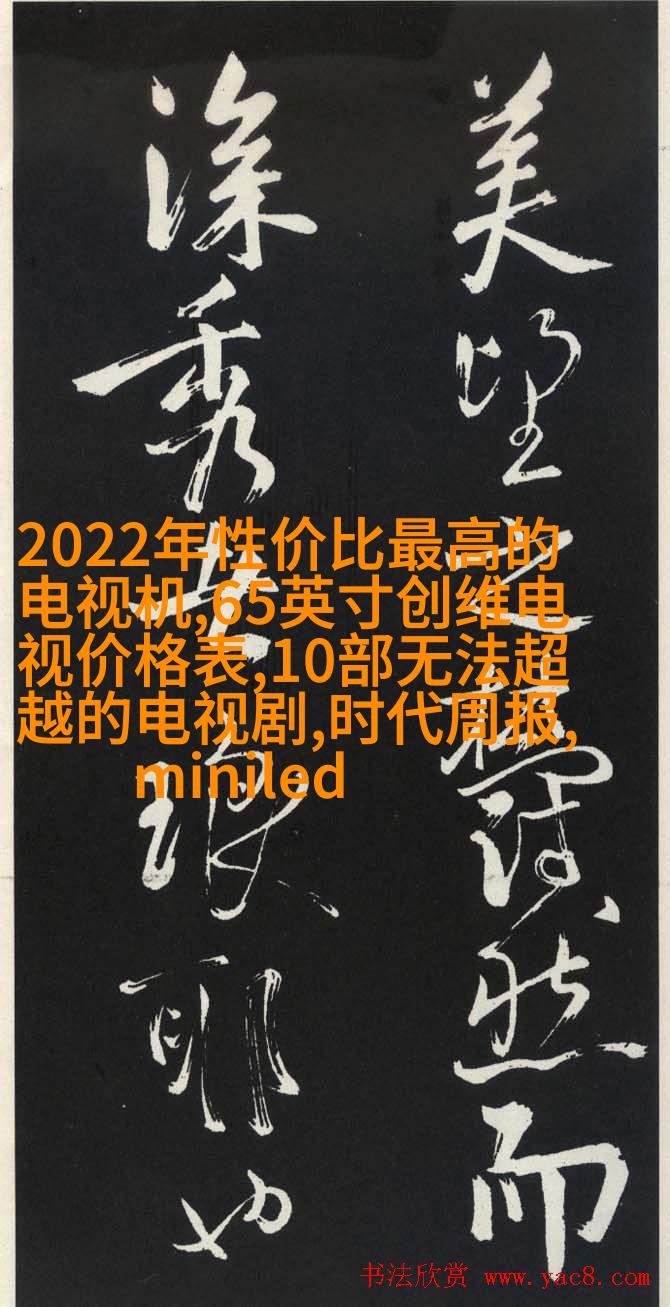 美望之蔚然而
深秀者琅耶也
2022年性价比最高的
电视机,65英寸创维电
视价格表,10部无法超
越的电视剧,时代周报,
miniled
书法欣赏 www.yac8.com